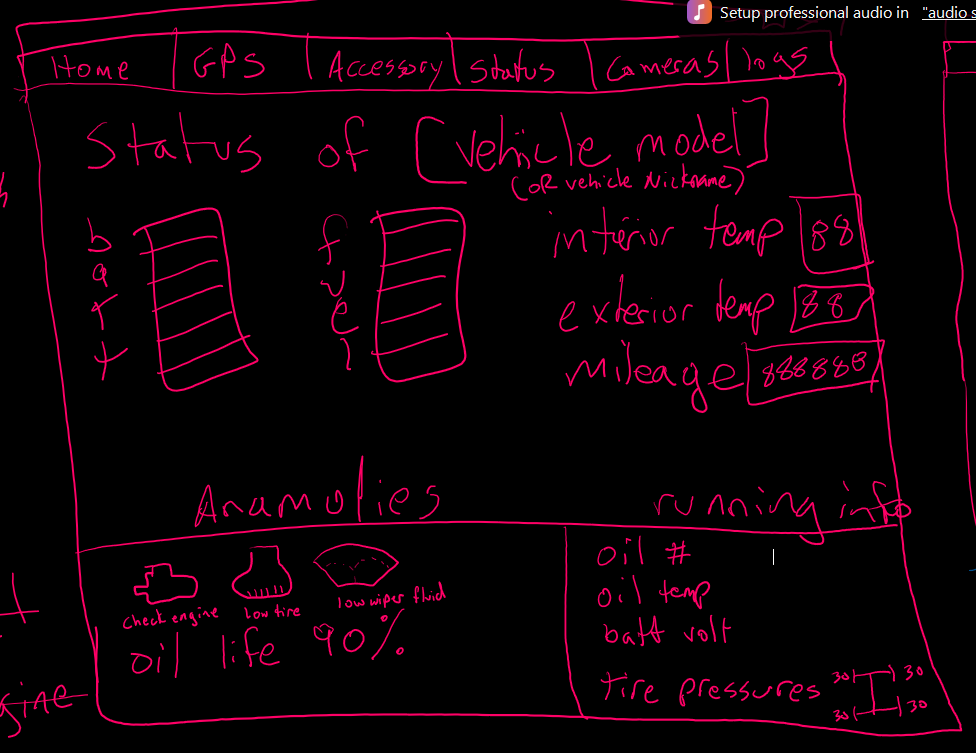 Setup professional audio in "audio s
Home GPS Accessory Status Cameras logs
Status of [vehicle model]
(OR vehicle Nickname)
batt
fuel
interior temp 88
exterior temp 88
mileage 888888
Anamolies
running info
check engine
low tire
low wiper fluid
oil life 90%
oil #
oil temp
batt volt
tire pressures
30 30
30 30
gine